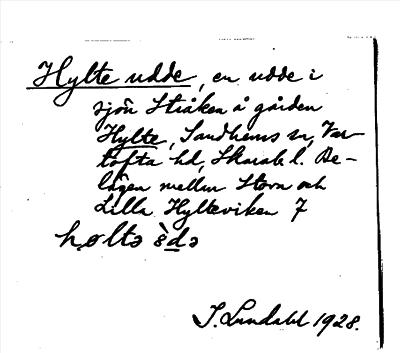 Hylte udde, en udde i
sjön Stråken å gården
Hylte, Sandhems sn, Var-
tofta hd, Skarab. l. Be-
lägen mellan Stora och
Lilla Hylteviken 7
I. Lundahl 1928.